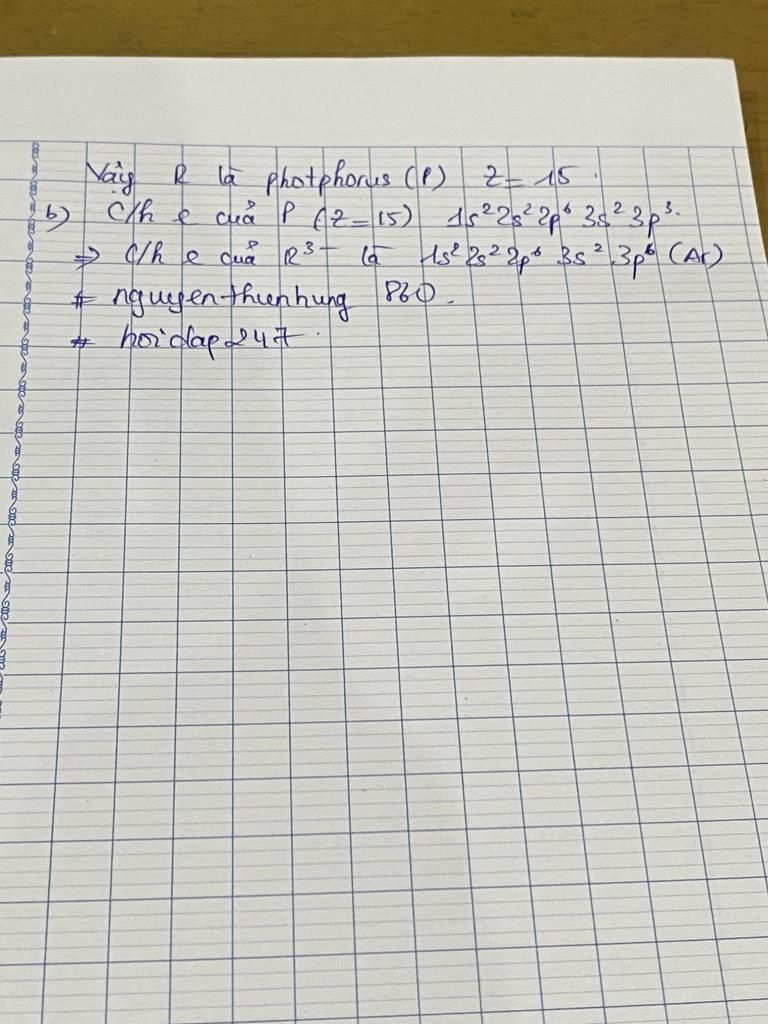 Vậy R là photphorus (P) Z = 15.
b) C/h e của P (Z = 15) 1s² 2s² 2p⁶ 3s² 3p³.
⇒ C/h e của R³⁻ là 1s² 2s² 2p⁶ 3s² 3p⁶ (Ar)
# nguyenthienhung 860.
# hoidap247.